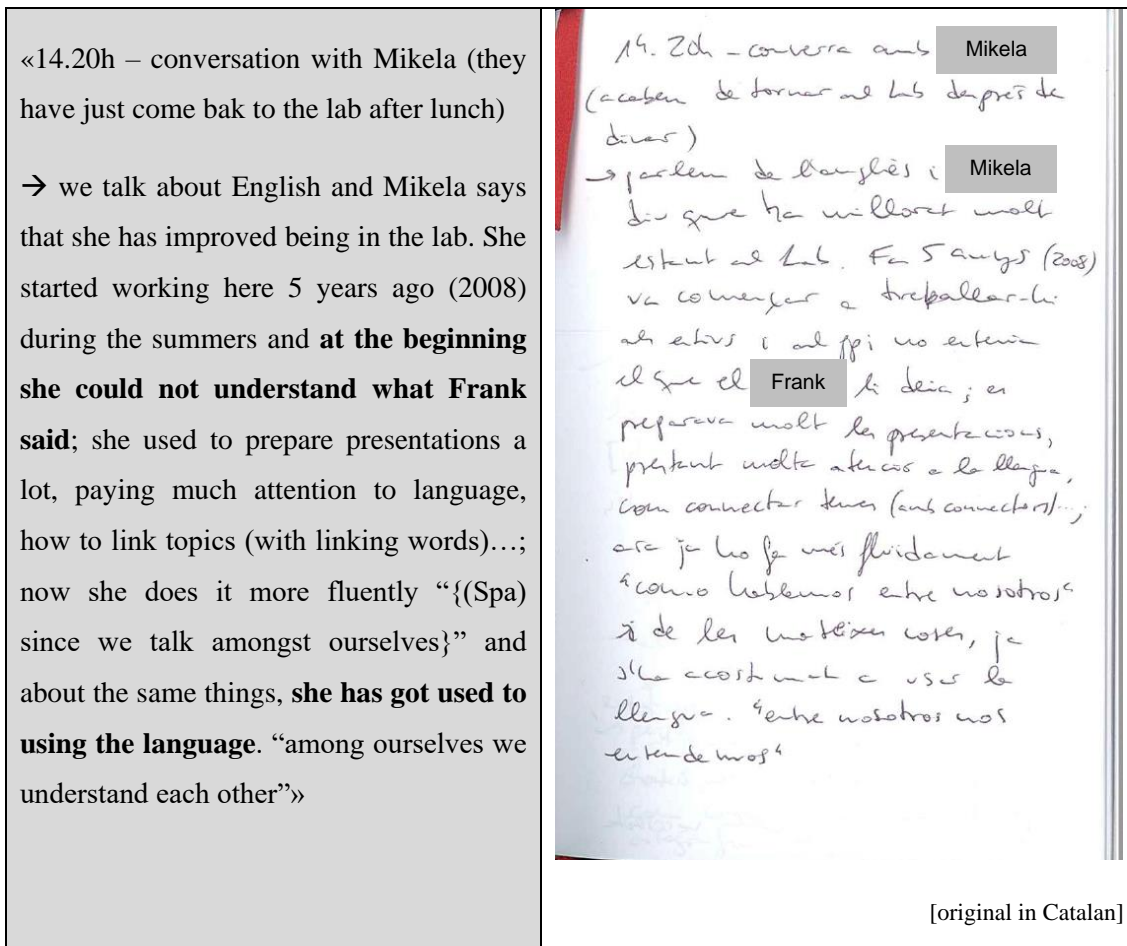 «14.20h – conversation with Mikela (they
have just come bak to the lab after lunch)
→ we talk about English and Mikela says
that she has improved being in the lab. She
started working here 5 years ago (2008)
during the summers and at the beginning
she could not understand what Frank
said; she used to prepare presentations a
lot, paying much attention to language,
how to link topics (with linking words)…;
now she does it more fluently “{(Spa)
since we talk amongst ourselves}” and
about the same things, she has got used to
using the language. “among ourselves we
understand each other”»
14.20h – conversa amb Mikela
(acaben de tornar al lab després de
dinar)
→ parlem de l'anglès i Mikela
diu que ha millorat molt
estant al lab. Fa 5 anys (2008)
va començar a treballar-hi
als estius i al ppi no entenia
el que el Frank li deia; es
preparava molt les presentacions,
prestant molta atenció a la llengua,
com connectar temes (amb connectors)…;
ara ja ho fa més fluidament
"como hablamos entre nosotros"
i de les mateixes coses, ja
s'ha acostumat a usar la
llengua. "entre nosotros nos
entendemos"
[original in Catalan]